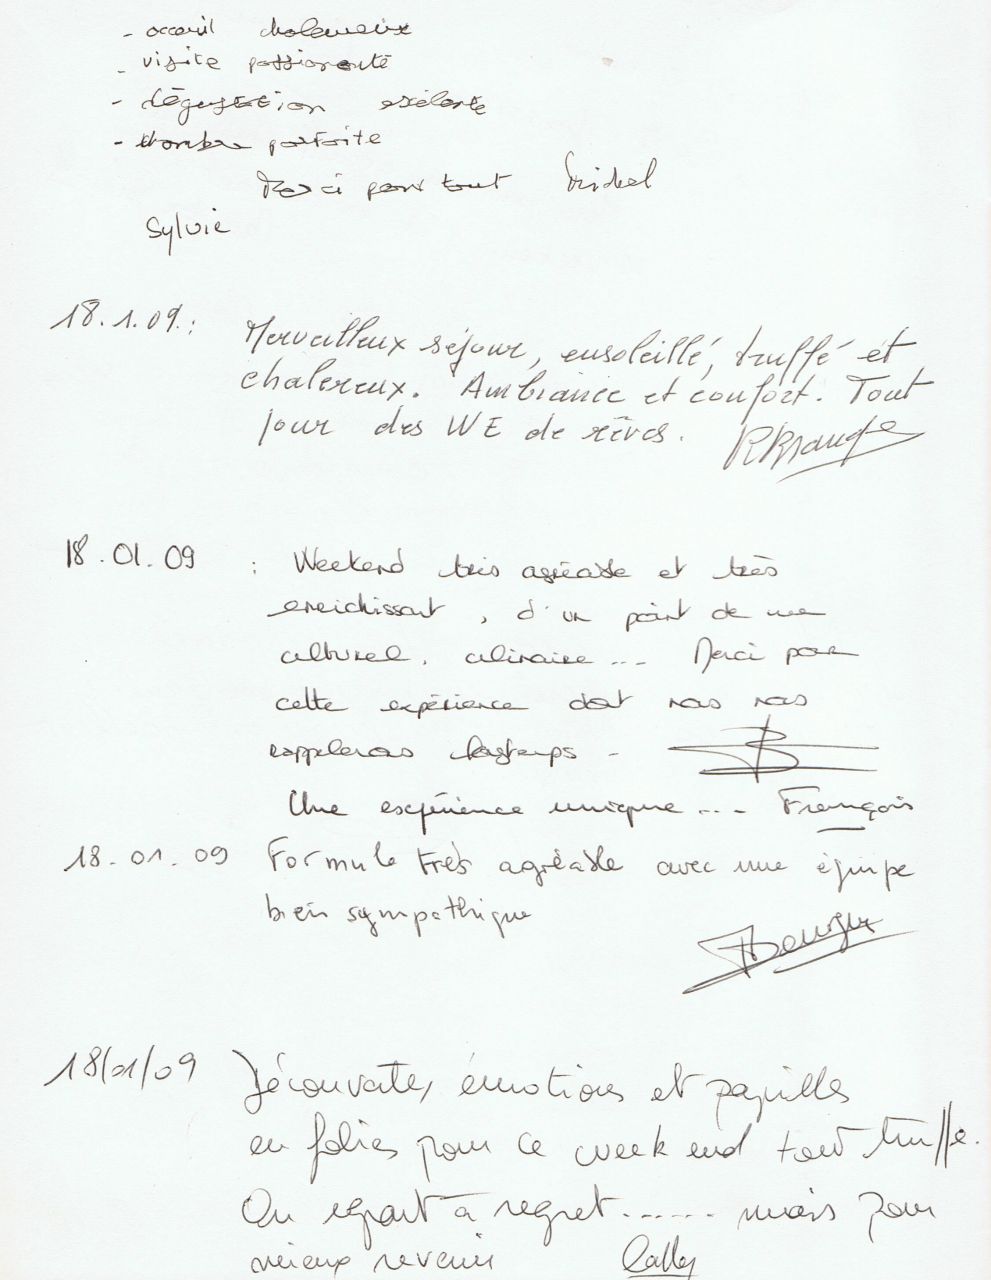 - acceuil chaleureux
- visite passionante
- dégustation exélente
- chambre parfaite
Merci pour tout Michel
Sylvie
18.1.09.: Merveilleux séjour, ensoleillé, truffé et
chalereux. Ambiance et confort. Tout
pour des WE de rêves.
18.01.09 : Weekend très agréable et très
enrichissant, d'un point de vue
culturel, culinaire... Merci pour
cette expérience dont nous nous
rappelerons longtemps -
Une expérience unique.... François
18.01.09 Formule très agréable avec une équipe
bien sympathique
18/01/09 Découvertes, émotions et papilles
en folies pour ce week end tout truffe.
On repart à regret....... mais pour
mieux revenir